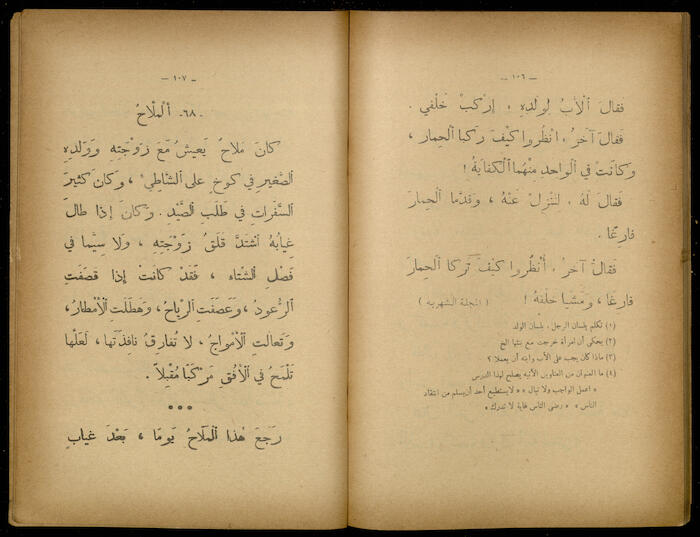 — ١٠٦ —
فقالَ ٱلْأَبُ لِوَلَدِهِ ، إِرْكَبْ خَلْفِي .
فَقالَ آخَرُ ، انْظُروا كَيْفَ رَكِبا ٱلْحِمار ،
وَكانَتْ في ٱلْواحِدِ مِنْهُما ٱلْكِفايَةُ !
فَقالَ لَهُ ، لِنَنْزِلْ عَنْهُ ، وَقَدَّما ٱلْحِمارَ
فارِغًا .
فَقالَ آخَرُ ، أُنْظُروا كَيْفَ تَرَكا ٱلْحِمارَ
فارِغًا ، وَمَشَيا خَلْفَهُ ! ( المجلة الشهرية )
(١) تكلم بلسان الرجل ، بلسان الولد
(٢) يحكى أن امرأة خرجت مع بنتها الخ
(٣) ماذا كان يجب على الأب وابنه أن يعملا ؟
(٤) ما العنوان من العناوين الآتية يصلح لهذا الدرس
« اعمل الواجب ولا تبال » « لا يستطيع أحد أن يسلم من انتقاد
الناس » « رضى الناس غاية لا تدرك »
— ١٠٧ —
٦٨. ٱلْمَلّاحُ
كانَ مَلّاحٌ يَعيشُ مَعَ زَوْجَتِهِ وَوَلَدِهِ
ٱلصَّغيرِ في كوخٍ على ٱلشّاطِئِ ، وَكانَ كَثيرَ
ٱلسَّفَراتِ في طَلَبِ ٱلصَّيْدِ . وَكانَ إِذا طالَ
غِيابُهُ ٱشْتَدَّ قَلَقُ زَوْجَتِهِ ، وَلا سِيَّما في
فَصْلِ ٱلشِّتاءِ ، فَقَدْ كانَتْ إِذا قَصَفَتِ
ٱلرُّعودُ ، وَعَصَفَتِ ٱلرِّياحُ ، وَهَطَلَتِ ٱلْأَمْطارُ ،
وَتَعالَتِ ٱلْأَمْواجُ ، لا تُفارِقُ نافِذَتَها ، لَعَلَّها
تَلْمَحُ في ٱلْأُفُقِ مَرْكَبًا مُقْبِلاً .
***
رَجَعَ هٰذا ٱلْمَلّاحُ يَوْمًا ، بَعْدَ غِيابٍ